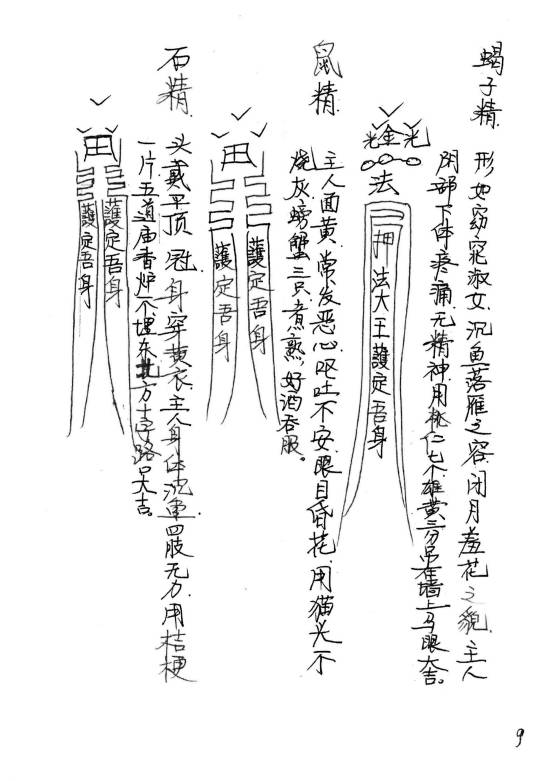 蝎子精
形如窈窕淑女沉鱼落雁之容闭月羞花之貌主人
阴部下体疼痛无精神用桃仁七个雄黄三分吊在墙上马眼大吉。
光金光
法
押法大王護定吾身
鼠精
主人面黄常发恶心呕吐不安眼目昏花用猫头不
烧灰螃蟹三只煮熟好酒吞服。
田
護定吾身
護定吾身
石精
头戴平顶冠身穿黄衣主人身体沉重四肢无力用桔梗
一片五道庙香炉个埋东北方十字路口大吉。
田
護定吾身
護定吾身
9